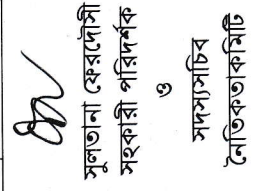 সুলতানা ফেরদৌসী
সহকারী পরিদর্শক
ও
সদস্যসচিব
নৈতিকতাকমিটি